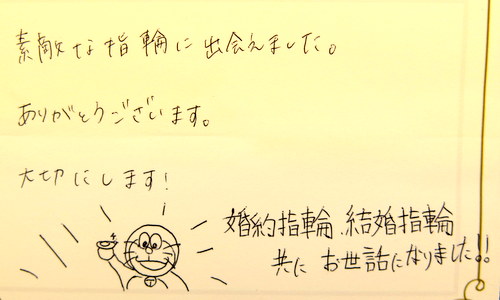 素敵な指輪に出会えました。
ありがとうございます。
大切にします!
婚約指輪、結婚指輪
共に お世話になりました!!